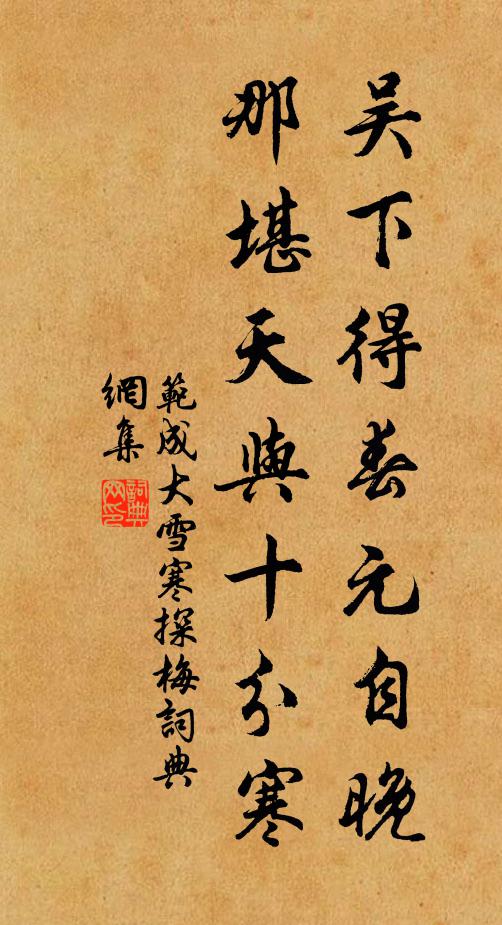 吴下得春元自晚
那堪天與十分寒
範成大雪寒探梅詞典
網集
詞典
网印